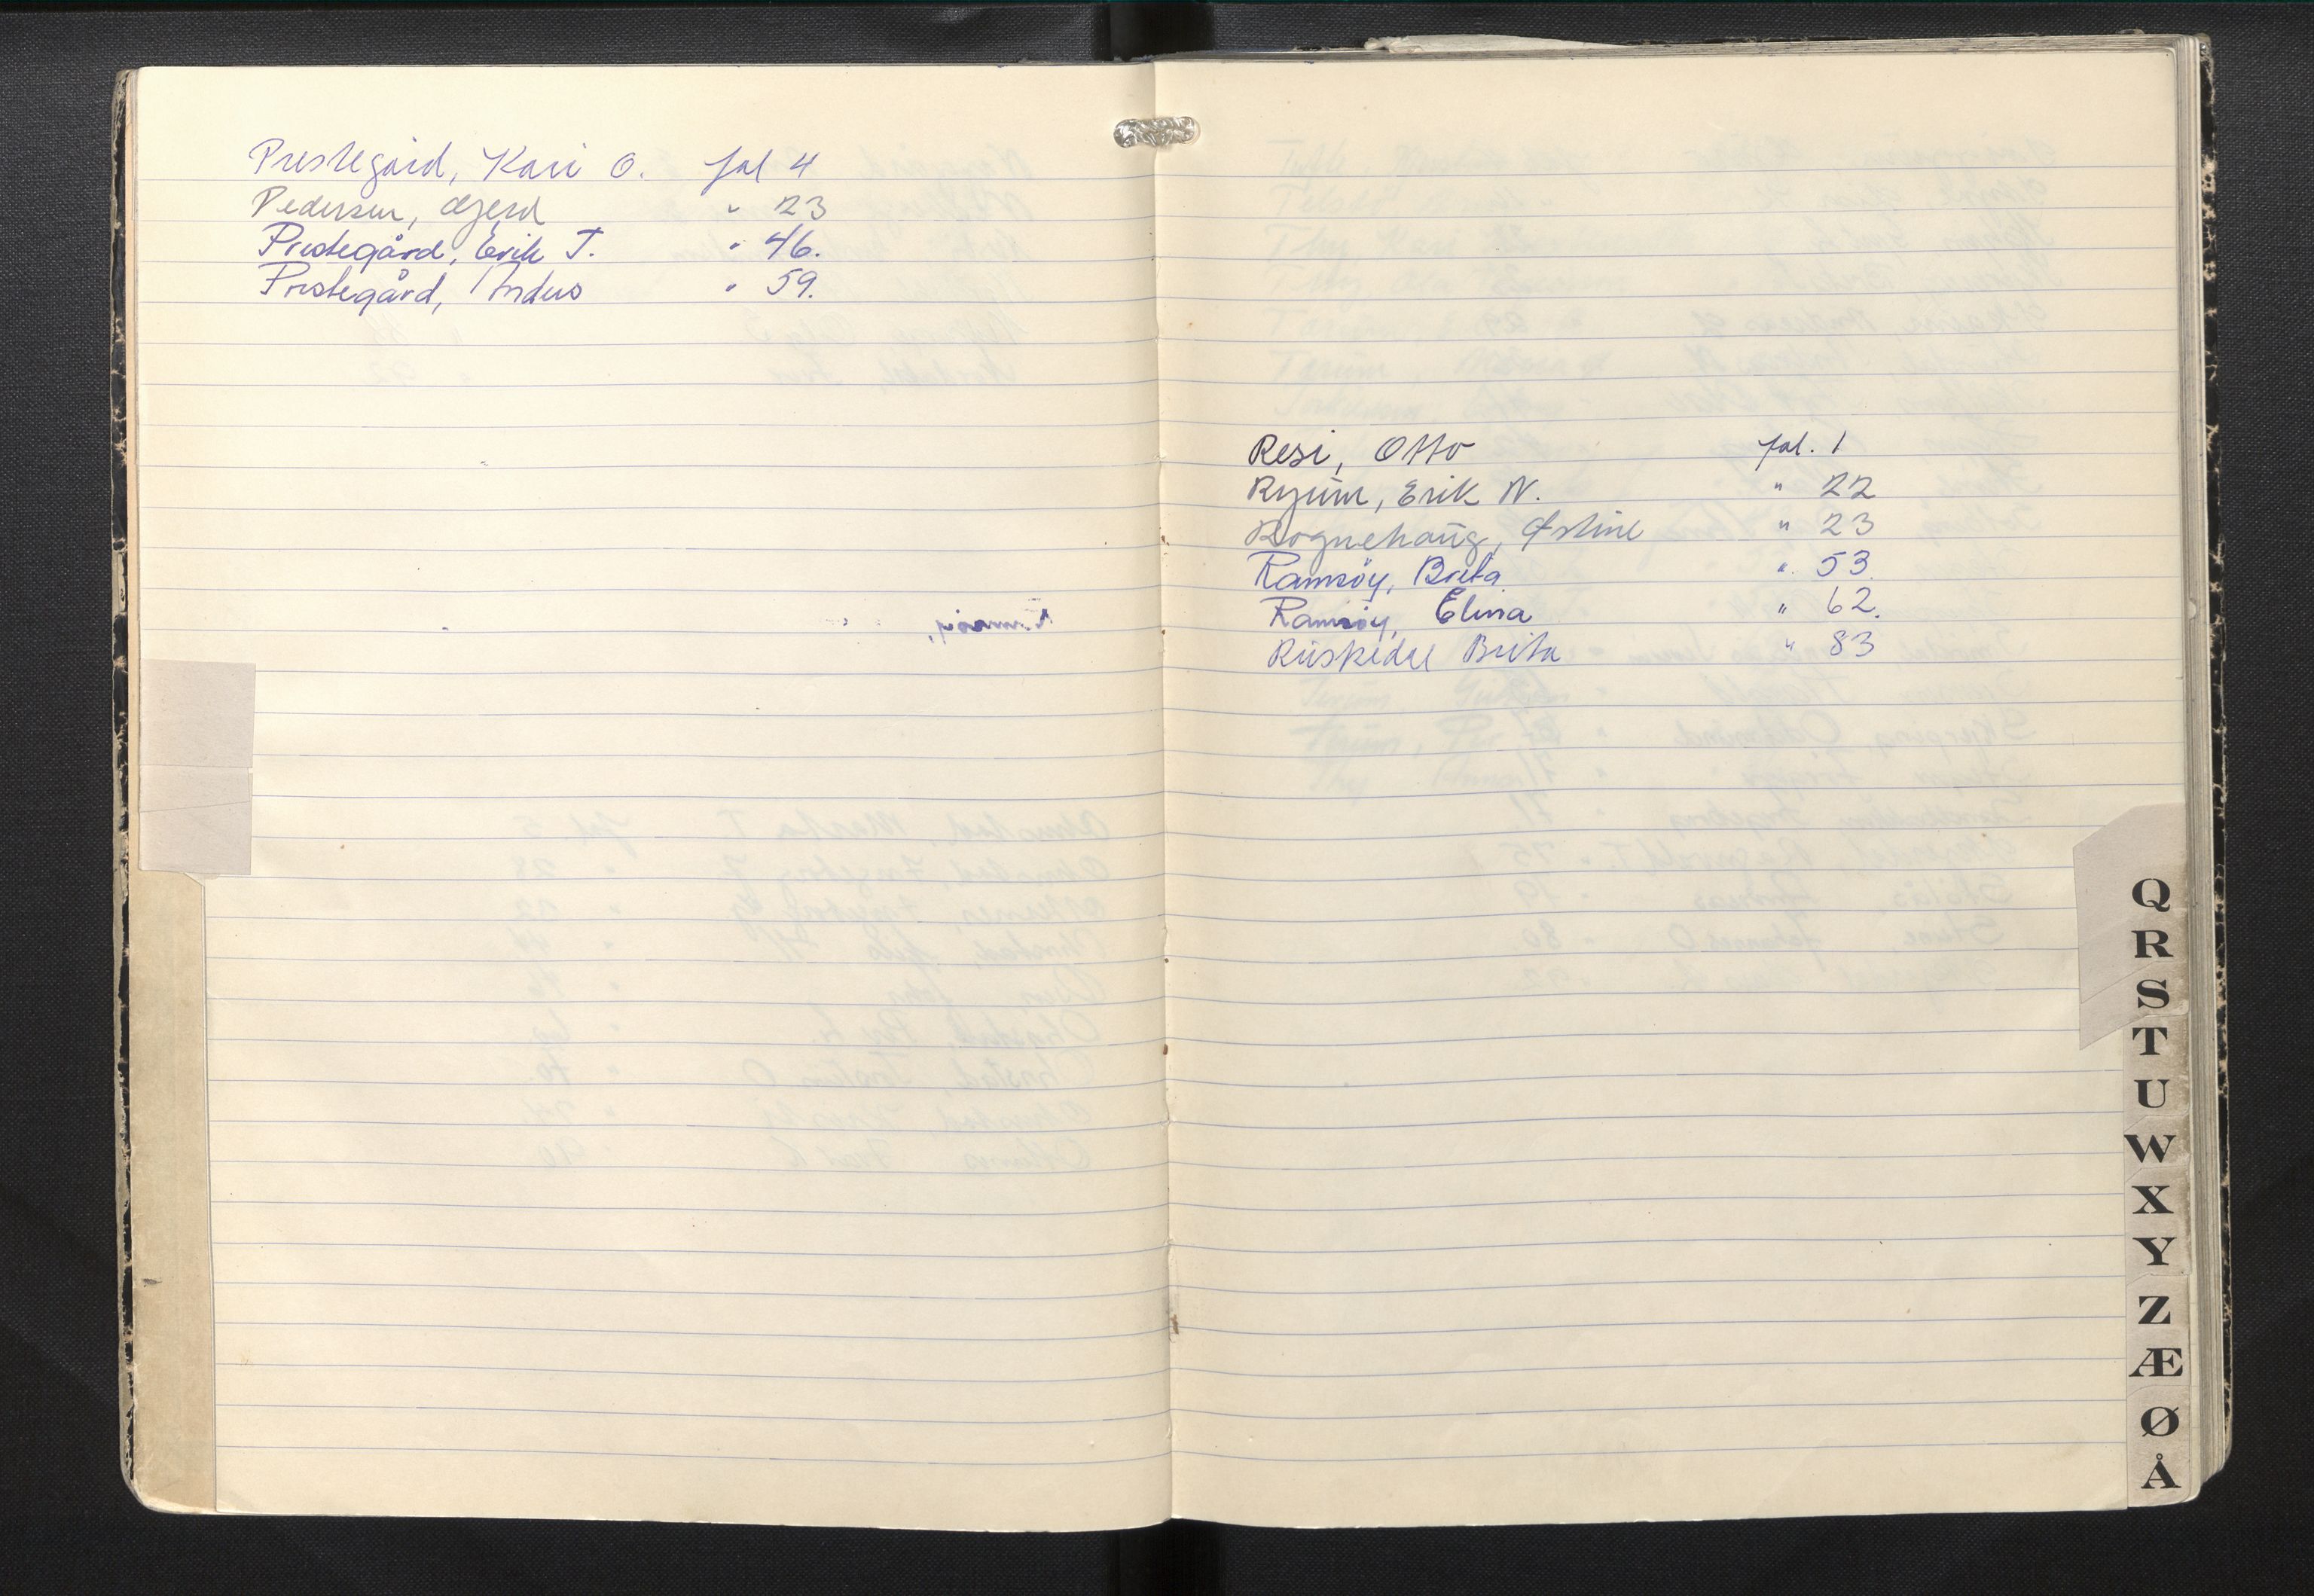 Prestegård, Kari O. fol 4
Pedersen, Gjerd " 23
Prestegård, Erik T. " 46.
Prestegård, Anders " 59.
Resi, Otto fol. 1
Ryum, Erik N. " 22
Rognehaug, Østine " 23
Ramsøy, Brita " 53.
Ramsøy, Elina " 62.
Brita " 83
Q
R
S
T
U
W
X
Y
Z
Æ
Ø
Å